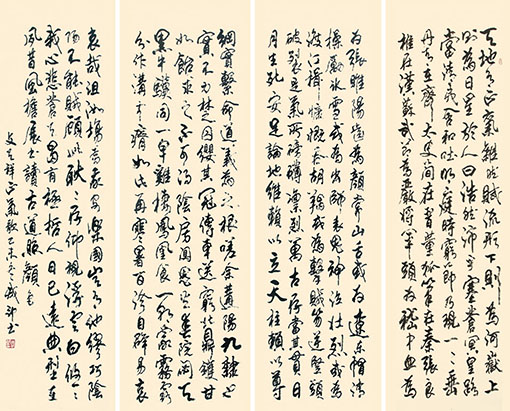 天地有正氣雜然賦流形下則為河嶽上
則為日星於人曰浩然沛乎塞蒼冥皇路
當清夷含和吐明庭時窮節乃見一一垂
丹青在齊太史簡在晉董狐筆在秦張良
椎在漢蘇武節為嚴將軍頭為嵇侍中血
為張睢陽齒為顏常山舌或為遼東帽清
操厲冰雪或為出師表鬼神泣壯烈或為
渡江楫慷慨吞胡羯或為擊賊笏逆豎頭
破裂是氣所磅礴凜烈萬古存當其貫日
月生死安足論地維賴以立天柱賴以尊
綱實繫命道義為之根嗟余遘陽九隸也
實不力楚囚纓其冠傳車送窮北鼎鑊甘
如飴求之不可得陰房闃鬼火春院閟天
黑牛驥同一皂雞棲鳳凰食一朝蒙霧露
分作溝中瘠如此再寒暑百沴自辟易
哀哉沮洳場為我安樂國豈有他繆巧陰
陽不能賊顧此耿耿存仰視浮雲白悠悠
我心悲蒼天曷有極哲人日已遠典型在
夙昔風檐展書讀古道照顏色
文天祥正氣歌乙未冬書